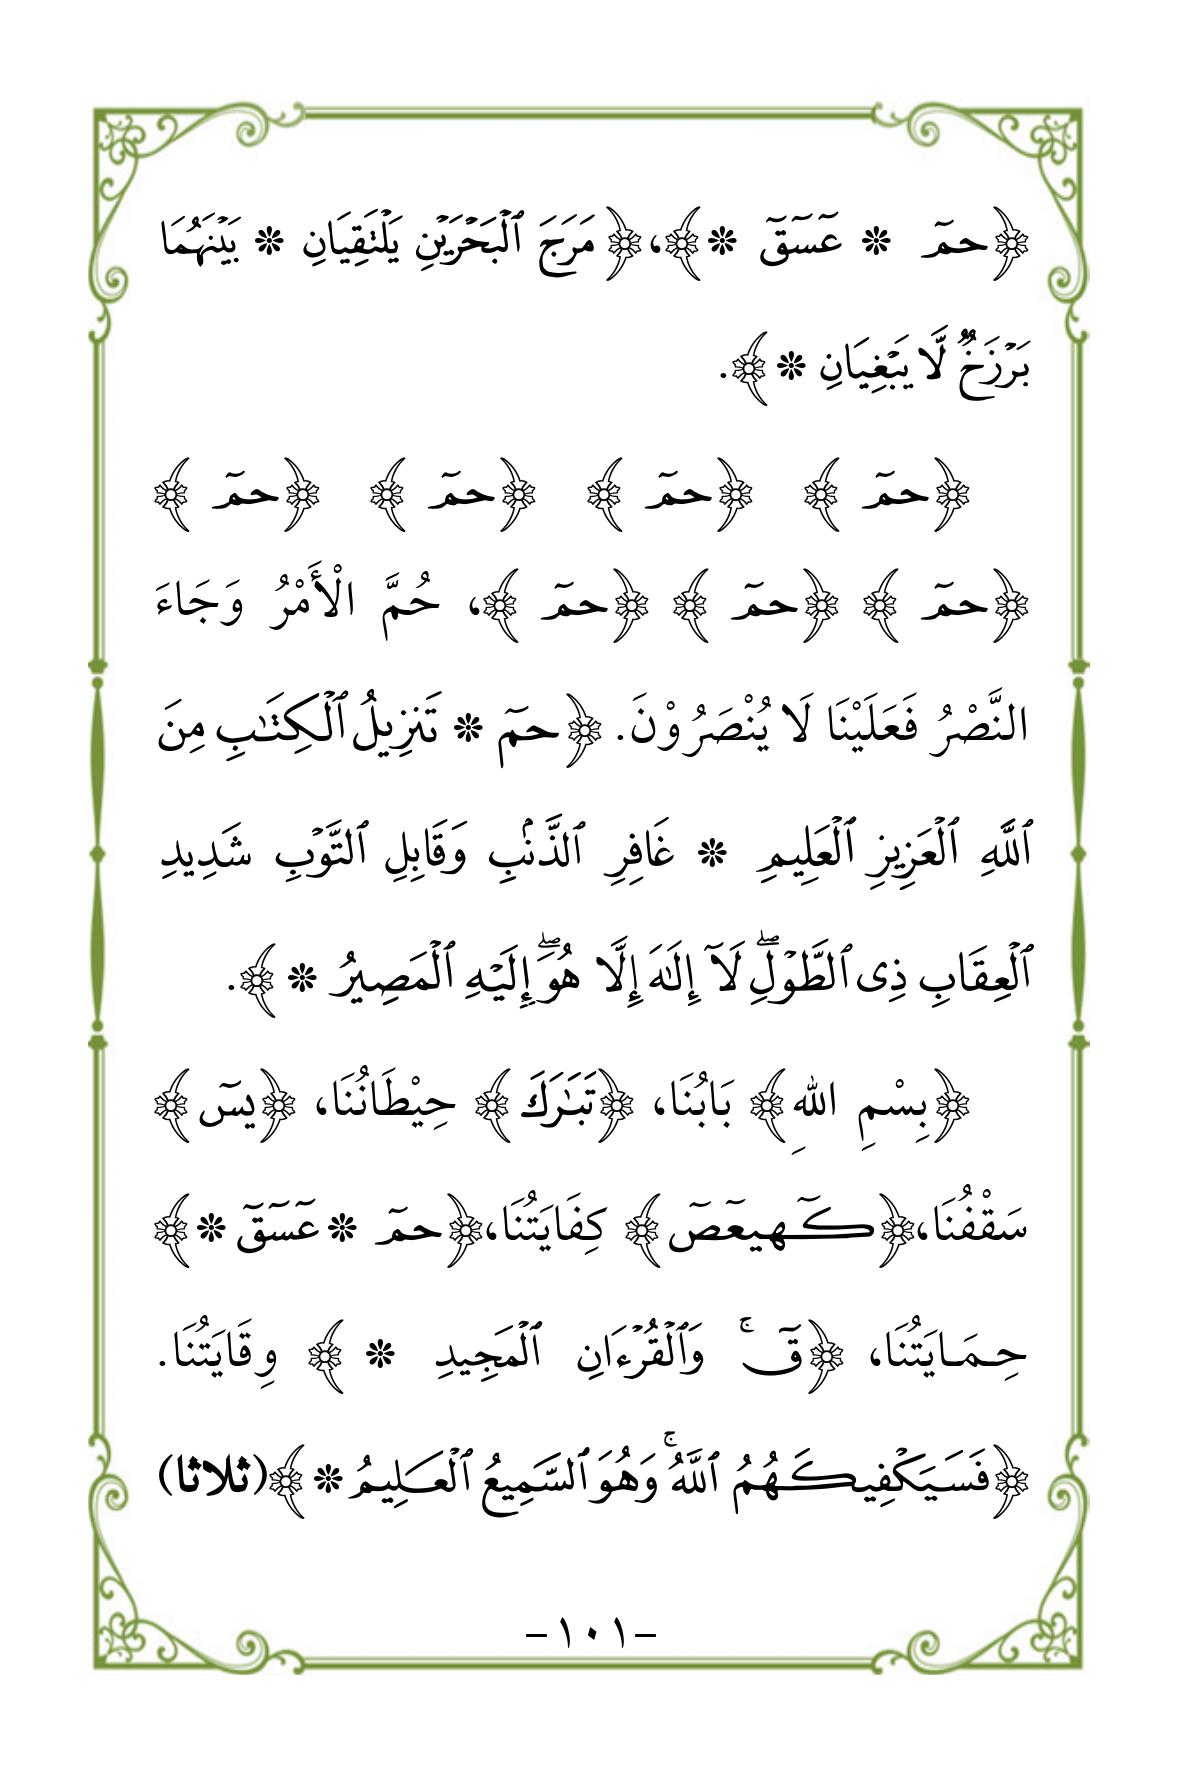 ﴿حمٓ ❊ عٓسٓقٓ ❊﴾، ﴿مَرَجَ ٱلْبَحْرَيْنِ يَلْتَقِيَانِ ❊ بَيْنَهُمَا
بَرْزَخٌ لَّا يَبْغِيَانِ ❊﴾.
﴿حمٓ ﴾ ﴿حمٓ ﴾ ﴿حمٓ ﴾ ﴿حمٓ ﴾
﴿حمٓ ﴾ ﴿حمٓ ﴾ ﴿حمٓ ﴾، حُمَّ الْأَمْرُ وَجَاءَ
النَّصْرُ فَعَلَيْنَا لَا يُنْصَرُوْنَ. ﴿حمٓ ❊ تَنزِيلُ ٱلْكِتَٰبِ مِنَ
ٱللَّهِ ٱلْعَزِيزِ ٱلْعَلِيمِ ❊ غَافِرِ ٱلذَّنۢبِ وَقَابِلِ ٱلتَّوْبِ شَدِيدِ
ٱلْعِقَابِ ذِى ٱلطَّوْلِۖ لَآ إِلَٰهَ إِلَّا هُوَۖ إِلَيْهِ ٱلْمَصِيرُ ❊﴾.
﴿بِسْمِ اللهِ﴾ بَابُنَا، ﴿تَبَٰرَكَ﴾ حِيْطَانُنَا، ﴿يسٓ﴾
سَقْفُنَا، ﴿كٓهيعٓصٓ﴾ كِفَايَتُنَا، ﴿حمٓ ❊ عٓسٓقٓ ❊﴾
حِمَايَتُنَا، ﴿قٓۚ وَٱلْقُرْءَانِ ٱلْمَجِيدِ ❊ ﴾ وِقَايَتُنَا.
﴿فَسَيَكْفِيكَهُمُ ٱللَّهُۚ وَهُوَ ٱلسَّمِيعُ ٱلْعَلِيمُ ❊﴾ (ثلاثا)
-١٠١-